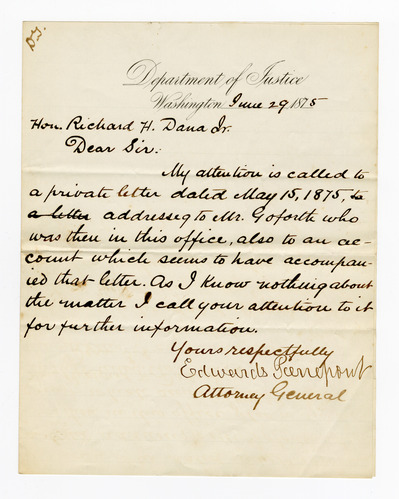 Department of Justice
Washington June 29 1875
Hon. Richard H. Dana Jr.
Dear Sir:
My attention is called to
a private letter dated May 15, 1875, to
a letter addressed to Mr. Goforth who
was then in this office, also to an ac-
count which seems to have accompan-
ied that letter. As I know nothing about
the matter I call your attention to it
for further information.
Yours respectfully
Edwards Pierrepont
Attorney General